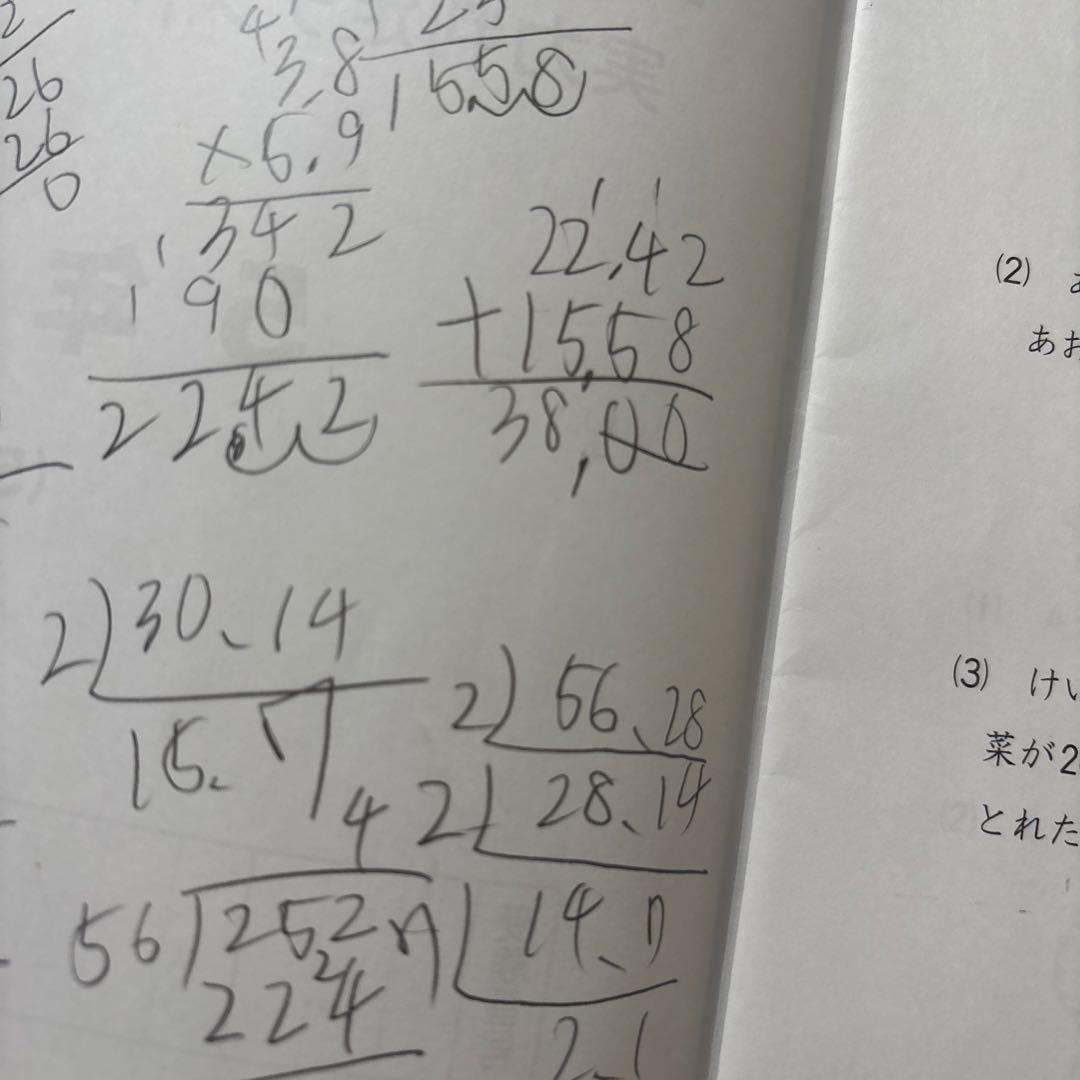 26
26
0
3.8
×5.9
342
190
22.42
15.58
22.42
+15.58
38.00
2)30、14
15.7
2)56、28
2)28、14
7)14、7
2、1
4
56)252
224
(2)
あお
(3) けい
菜が2
とれた